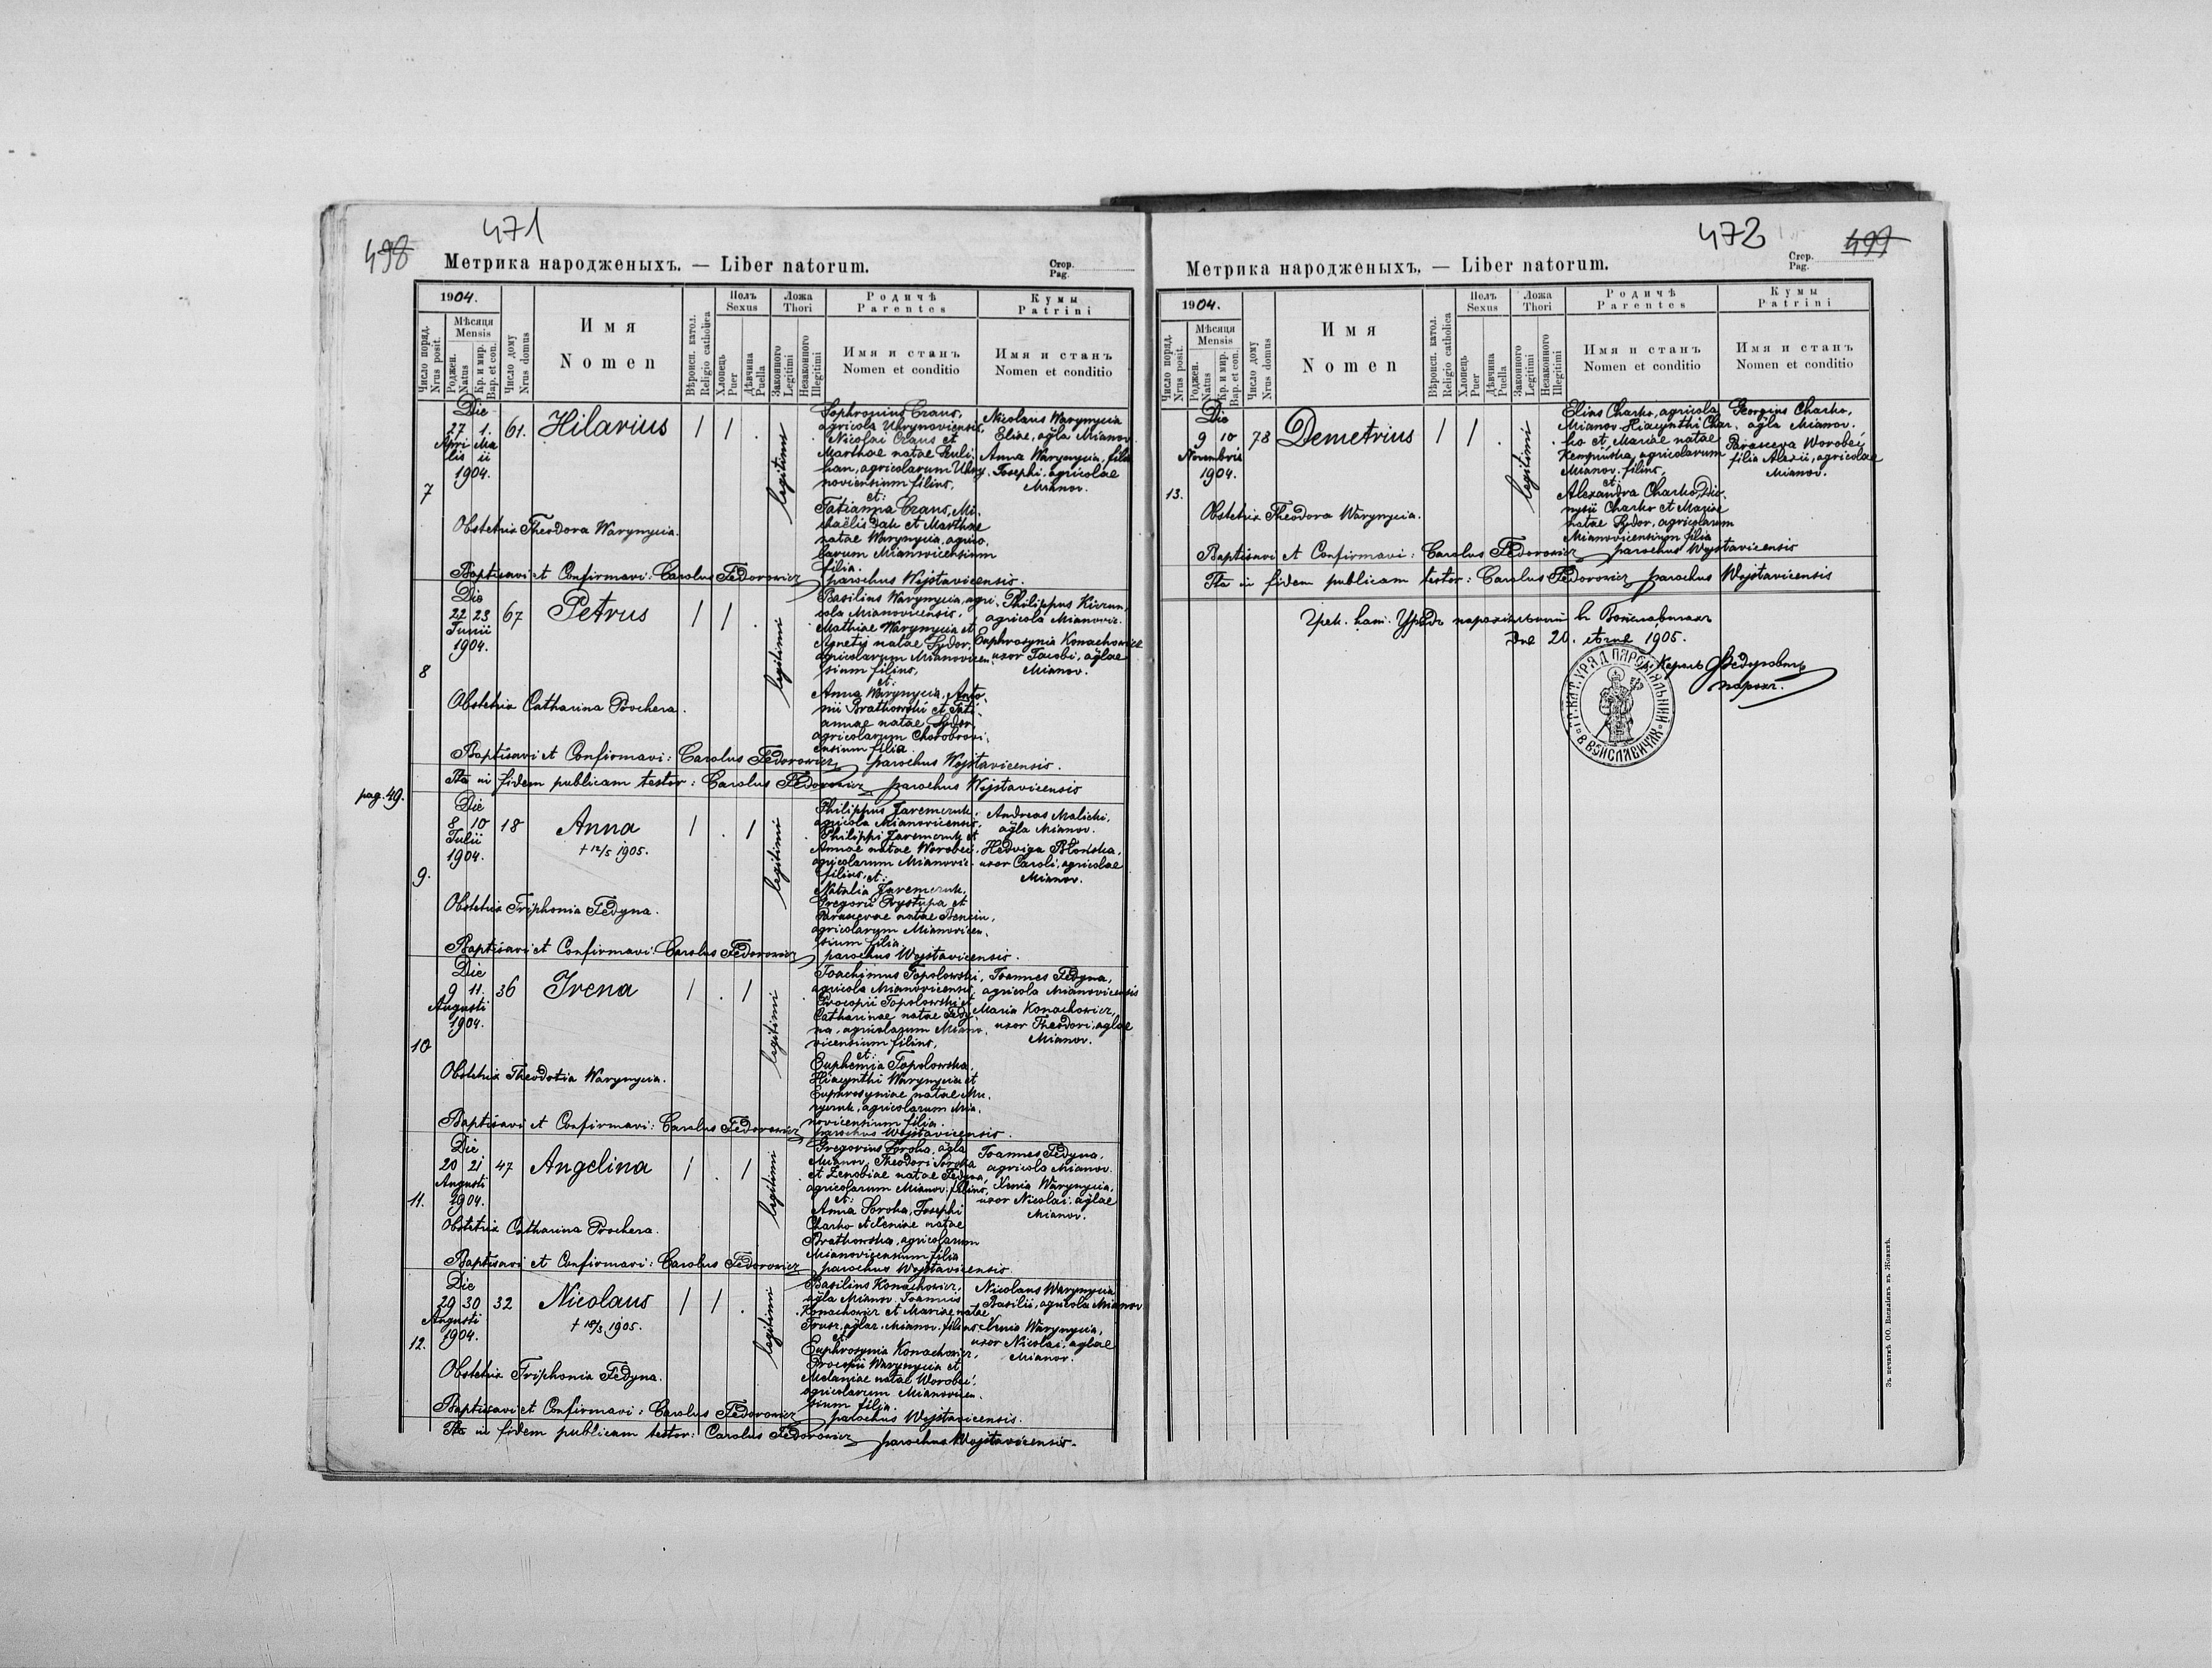 498
471
Метрика народженыхъ. — Liber natorum.
Стор.
Pag.
1904.
Число поряд.
Nrus posit.
Мѣсяця
Mensis
Роджен.
Natus
Кр. и мир.
Bap. et con.
Число дому
Nrus domus
Имя
Nomen
Вѣроисп. катол.
Religio catholica
Полъ
Sexus
Хлопець
Puer
Дѣвчина
Puella
Ложа
Thori
Законного
Legitimi
Незаконного
Illegitimi
Родичѣ
Parentes
Имя и станъ
Nomen et conditio
Кумы
Patrini
Имя и станъ
Nomen et conditio
7
Die
27 1.
Apri Ma
lis ii
1904.
61.
Hilarius
1 1 .
legitimi
Sophronius Craus,
agricola Uhrynoviensis,
Nicolai Craus et
Marthae natae Kuli-
han, agricolarum Uhry-
noviensium filius,
et:
Tatianna Craus, Mi-
chaëlis Dak et Marthae
natae Warynycia, agrico-
larum Mianovicensium
filia.
Nicolaus Warynycia
Eliae, agla Mianov.
Anna Warynycia, filia
Josephi, agricolae
Mianov.
Obstetrix Theodora Warynycia.
Baptisavi et Confirmavi: Carolus Fedorowicz parochus Wojslavicensis.
8
Die
22 23
Junii
1904.
67
Petrus
1 1 .
legitimi
Basilius Warynycia, agri-
cola Mianovicensis,
Mathiae Warynycia et
Agnetis natae Sydor,
agricolarum Mianovicen-
sium filius,
et:
Anna Warynycia, Anto-
nii Bratkowski et Tati-
annae natae Sydor,
agricolarum Chorobrovi-
ensium filia.
Philippus Kierun,
agricola Mianovic.
Euphrosynia Konachowicz
uxor Jacobi, aglae
Mianov.
Obstetrix Catharina Prochera.
Baptisavi et Confirmavi: Carolus Fedorowicz parochus Wojslavicensis.
Ita in fidem publicam testor: Carolus Fedorowicz parochus Wojslavicensis
pag. 49.
9.
Die
8 10
Julii
1904.
18
Anna
+ 12/5 1905.
1 . 1
legitimi
Philippus Jaremczuk,
agricola Mianovicensis,
Philippi Jaremczuk et
Annae natae Worobec,
agricolarum Mianovic.
filius, et:
Natalia Jaremczuk,
Gregorii Prystupa et
Parascevae natae Bencin,
agricolarum Mianovicen-
sium filia.
Andreas Malicki,
agla Mianov.
Hedviga Błońska,
uxor Caroli, agricolae
Mianov.
Obstetrix Triphonia Fedyna.
Baptisavi et Confirmavi: Carolus Fedorowicz parochus Wojslavicensis.
10
Die
9 11.
Augusti
1904.
36
Irena
1 . 1
legitimi
Joachimus Topolowski,
agricola Mianovicensis,
Procopii Topolowski et
Catharinae natae Fedy-
na, agricolarum Miano-
vicensium filius,
et:
Euphemia Topolowska,
Hiacynthi Warynycia et
Euphrosyniae natae Mu-
zyczuk, agricolarum Mia-
novicensium filia.
Joannes Fedyna,
agricola Mianovicensis
Maria Konachowicz,
uxor Theodori, aglae
Mianov.
Obstetrix Theodotia Warynycia.
Baptisavi et Confirmavi: Carolus Fedorowicz parochus Wojslavicensis.
11.
Die
20 21
Augusti
1904.
47
Angelina
1 . 1
legitimi
Gregorius Soroka, agla
Mianov, Theodori Soroka
et Zenobiae natae Fedyna,
agricolarum Mianov. filius,
et:
Anna Soroka, Josephi
Charko et Xeniae natae
Bratkowska, agricolarum
Mianovicensium filia
Joannes Fedyna,
agricola Mianov.
Xenia Warynycia,
uxor Nicolai, aglae
Mianov.
Obstetrix Catharina Prochera.
Baptisavi et Confirmavi: Carolus Fedorowicz parochus Wojslavicensis.
12.
Die
29 30
Augusti
1904.
32
Nicolaus
+ 18/3 1905.
1 1 .
legitimi
Basilius Konachowicz,
agla Mianov. Joannis
Konachowicz et Mariae natae
Trusz, aglar. Mianov. filius
et:
Euphrosynia Konachowicz,
Procopii Warynycia et
Melaniae natae Worobec,
agricolarum Mianovicen-
sium filia.
Nicolaus Warynycia
Basilii, agricola Mianov
Xenia Warynycia,
uxor Nicolai, aglae
Mianov.
Obstetrix Triphonia Fedyna.
Baptisavi et Confirmavi: Carolus Fedorowicz parochus Wojslavicensis.
Ita in fidem publicam testor: Carolus Fedorowicz parochus Wojslavicensis.
472
499
Метрика народженыхъ. — Liber natorum.
Стор.
Pag.
1904.
Число поряд.
Nrus posit.
Мѣсяця
Mensis
Роджен.
Natus
Кр. и мир.
Bap. et con.
Число дому
Nrus domus
Имя
Nomen
Вѣроисп. катол.
Religio catholica
Полъ
Sexus
Хлопець
Puer
Дѣвчина
Puella
Ложа
Thori
Законного
Legitimi
Незаконного
Illegitimi
Родичѣ
Parentes
Имя и станъ
Nomen et conditio
Кумы
Patrini
Имя и станъ
Nomen et conditio
13.
Die
9 10
Novembris
1904.
78
Demetrius
1 1 .
legitimi
Elias Charko, agricola
Mianov. Hiacynthi Char-
ko et Mariae natae
Kempińska, agricolarum
Mianov. filius,
et:
Alexandra Charko, Dio-
nysii Charko et Mariae
natae Sydor, agricolarum
Mianovicensium filia
Georgius Charko,
agla Mianov.
Parasceva Worobec,
filia Alexii, agricolae
Mianov.
Obstetrix Theodora Warynycia.
Baptisavi et Confirmavi: Carolus Fedorowicz parochus Wojslavicensis
Ita in fidem publicam testor: Carolus Fedorowicz parochus Wojslavicensis
Грек. кат. Урядъ парохіяльный в Войславичахъ
Дня 20. 1905.
Кароль Федорович
парох.
ГР. КАТ. УРЯД ПАРОХІЯЛЬНИЙ В ВОЙСЛАВИЧАХ
Зъ печатнѣ ОО. Василіянъ въ Жовквѣ.